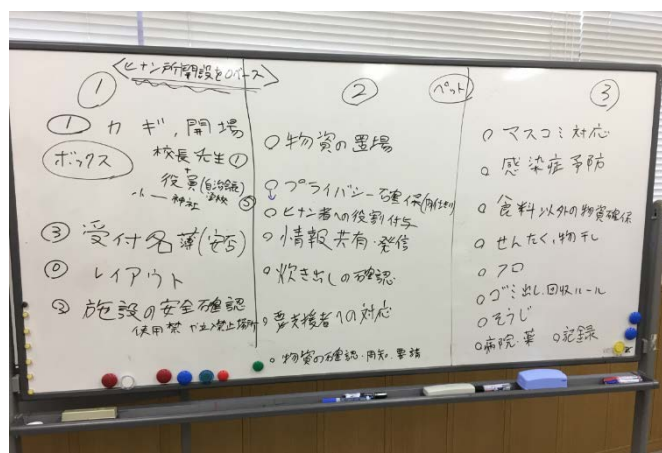 <ヒナン所開設を0ベース>
①
① カギ、開場
ボックス
校長先生①
+
役員(自治会長)
神社 ⑤
③ 受付名薄(安否)
⓪ レイアウト
② 施設の安全確認
使用禁 や立入禁止場所
②
○物資の置場
○プライバシー確保(間仕切り)
○ヒナン者への役割付与
○情報共有・発信
○炊き出しの確認
○要支援者への対応
○物資の確認・周知・要請
ペット
③
○マスコミ対応
○感染症予防
○食料以外の物資確保
○せんたく、物干し
○フロ
○ゴミ出し、回収ルール
○そうじ
○病院・薬 ○記録